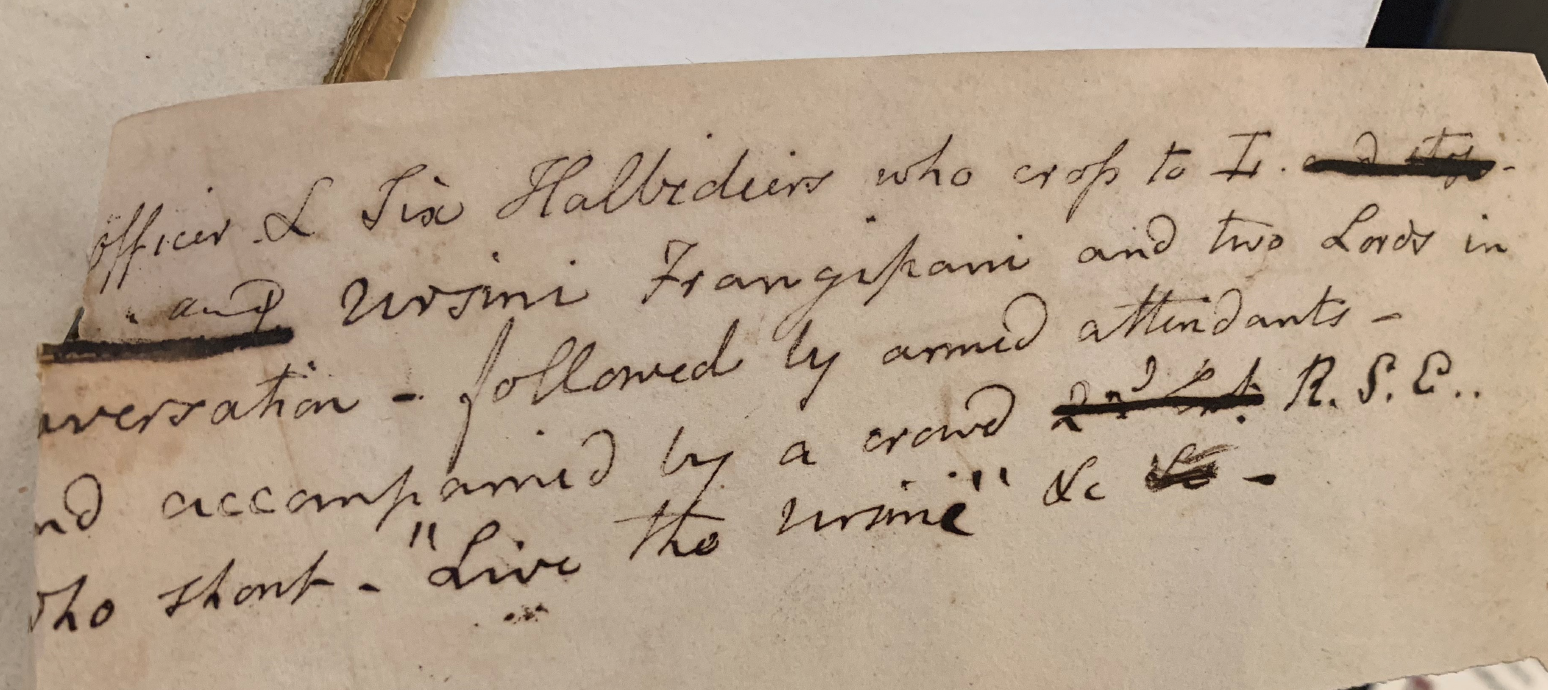 officer & Six Halbediers who cross to L.
and Ursini Frangipani and two Lords in
nversation - followed by armed attendants -
nd accompanied by a crowd 2nd Ent. R. S. E..
who shout - "Live the Ursini" &c &c -